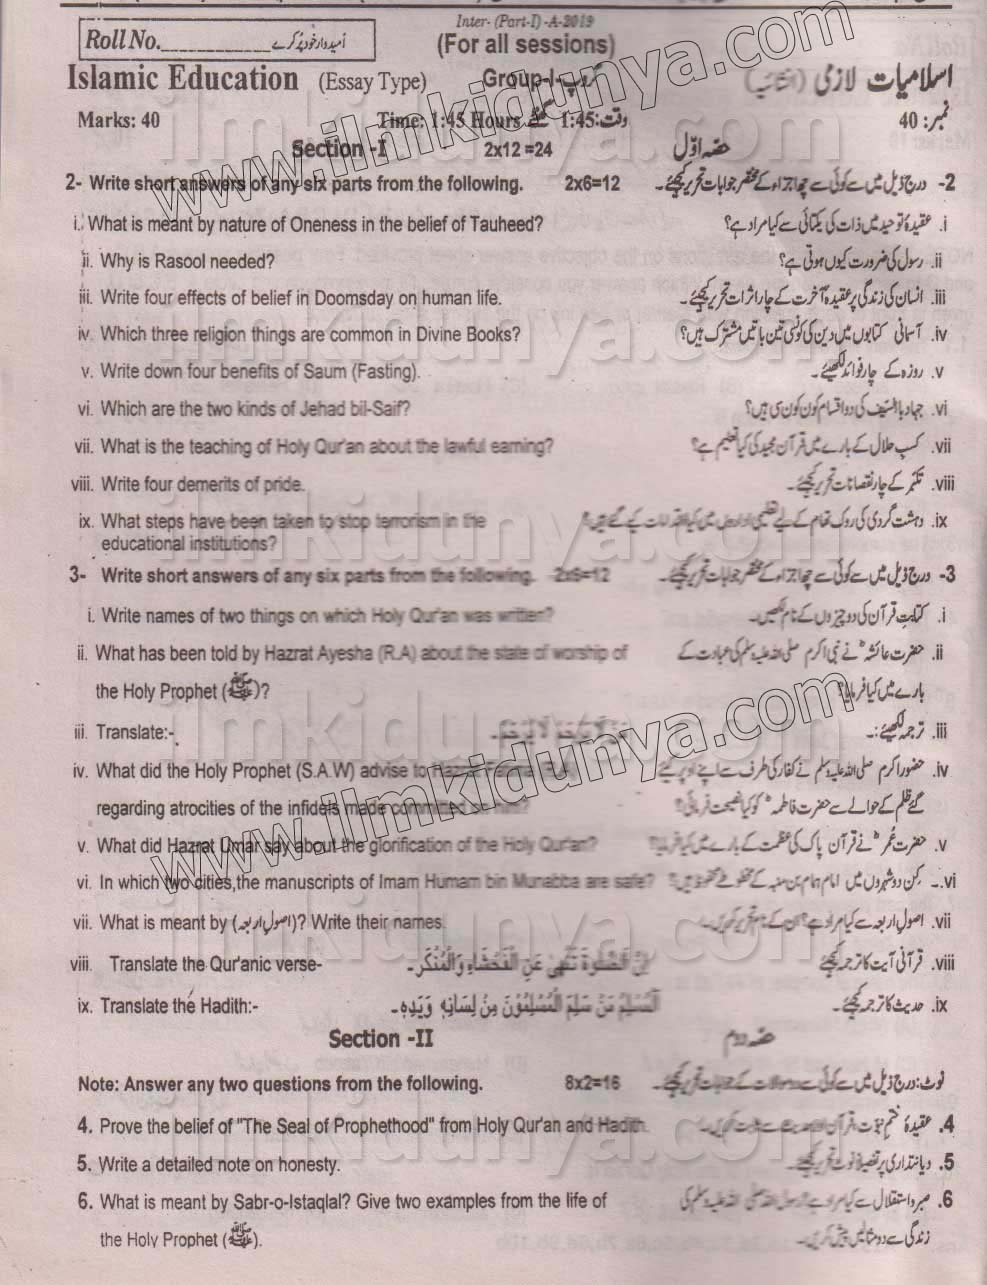 Inter- (Part-I) -A-2019
Roll No.____________ امیدوار خود پُر کرے
(For all sessions)
Islamic Education (Essay Type) Group-I-گروپ اسلامیات لازمی (انشائیہ)
Marks: 40 Time: 1:45 Hours وقت: 1:45 گھنٹے نمبر: 40
Section -I 2x12 =24 حصہ اوّل
2- Write short answers of any six parts from the following. 2x6=12 2- درج ذیل میں سے کوئی سے چھ اجزاء کے مختصر جوابات تحریر کیجئے۔
i. What is meant by nature of Oneness in the belief of Tauheed? i. عقیدۂ توحید میں ذات کی یکتائی سے کیا مراد ہے؟
ii. Why is Rasool needed? ii. رسول کی ضرورت کیوں ہوتی ہے؟
iii. Write four effects of belief in Doomsday on human life. iii. انسان کی زندگی پر عقیدہ آخرت کے چار اثرات تحریر کیجئے۔
iv. Which three religion things are common in Divine Books? iv. آسمانی کتابوں میں دین کی کونسی تین باتیں مشترک ہیں؟
v. Write down four benefits of Saum (Fasting). v. روزہ کے چار فوائد لکھیئے۔
vi. Which are the two kinds of Jehad bil-Saif? vi. جہاد بالسّیف کی دو اقسام کون کون سی ہیں؟
vii. What is the teaching of Holy Qur'an about the lawful earning? vii. کسبِ حلال کے بارے میں قرآن مجید کی کیا تعلیم ہے؟
viii. Write four demerits of pride. viii. تکبّر کے چار نقصانات تحریر کیجئے۔
ix. What steps have been taken to stop terrorism in the ix. دہشت گردی کی روک تھام کے لیے تعلیمی اداروں میں کیا اقدامات کیے گئے ہیں؟
educational institutions?
3- Write short answers of any six parts from the following. 2x6=12 3- درج ذیل میں سے کوئی سے چھ اجزاء کے مختصر جوابات تحریر کیجئے۔
i. Write names of two things on which Holy Qur'an was written? i. کتابتِ قرآن کی دو چیزوں کے نام لکھیں۔
ii. What has been told by Hazrat Ayesha (R.A) about the state of worship of ii. حضرت عائشہؓ نے نبی اکرم صلی اللہ علیہ وسلم کی عبادت کے
the Holy Prophet (ﷺ)? بارے میں کیا فرمایا؟
iii. Translate:- مَنْ لَّا يَرْحَمُ لَا يُرْحَمُ۔ iii. ترجمہ لکھیئے:۔
iv. What did the Holy Prophet (S.A.W) advise to Hazrat Fatima (R.A) iv. حضور اکرم صلی اللہ علیہ وسلم نے کفار کی طرف سے اپنے اوپر کیے
regarding atrocities of the infidels made committed on him? گئے ظلم کے حوالے سے حضرت فاطمہؓ کو کیا نصیحت فرمائی؟
v. What did Hazrat Umar say about the glorification of the Holy Qur'an? v. حضرت عُمرؓ نے قرآن پاک کی عظمت کے بارے میں کیا فرمایا؟
vi. In which two cities,the manuscripts of Imam Humam bin Munabba are safe? vi. کِن دو شہروں میں امام ہمام بن منبہ کے مخطوطے محفوظ ہیں؟
vii. What is meant by (اصولِ اربعہ)? Write their names. vii. اصولِ اربعہ سے کیا مراد ہے؟ ان کے نام تحریر کریں۔
viii. Translate the Qur'anic verse- اِنَّ الصَّلٰوةَ تَنْهٰى عَنِ الْفَحْشَآءِ وَالْمُنْكَرِ۔ viii. قرآنی آیت کا ترجمہ کیجئے
ix. Translate the Hadith:- اَلْمُسْلِمُ مَنْ سَلِمَ الْمُسْلِمُوْنَ مِنْ لِسَانِهٖ وَيَدِهٖ۔ ix. حدیث کا ترجمہ کیجئے۔
Section -II حصہ دوم
Note: Answer any two questions from the following. 8x2=16 نوٹ: درج ذیل میں سے کوئی سے دو سوالات کے جوابات تحریر کیجئے۔
4. Prove the belief of "The Seal of Prophethood" from Holy Qur'an and Hadith. 4. عقیدۂ ختمِ نبوّت، قرآن اور حدیث سے ثابت کریں۔
5. Write a detailed note on honesty. 5. دیانتداری پر تفصیلاً نوٹ تحریر کیجئے۔
6. What is meant by Sabr-o-Istaqlal? Give two examples from the life of 6. صبر و استقلال سے کیا مراد ہے؟ رسول اللہ صلی اللہ علیہ وسلم کی
the Holy Prophet (ﷺ). زندگی سے دو مثالیں پیش کریں۔
www.ilmkidunya.com
www.ilmkidunya.com
ilmkidunya.com
ilmkidunya.com
ilmkidunya.com
ilmkidunya.com
ilmkidunya.com
ilmkidunya.com